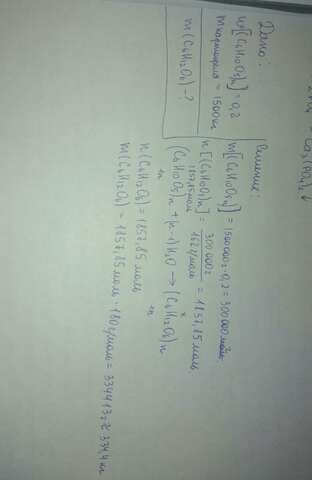 Дано:
w[(C6H10O5)n] = 0,2
m картофеля = 1500кг
m(C6H12O6) - ?
Решение:
m[(C6H10O5)n] = 1500000г · 0,2 = 300000
n[(C6H10O5)n] = 300000г / 162г/моль = 1857,85 моль.
1857,85моль x
(C6H10O5)n + (n-1)H2O → (C6H12O6)n
·n ·n
n(C6H12O6) = 1857,85моль
m(C6H12O6) = 1857,85моль · 180г/моль = 334413г ≈ 334,4 кг